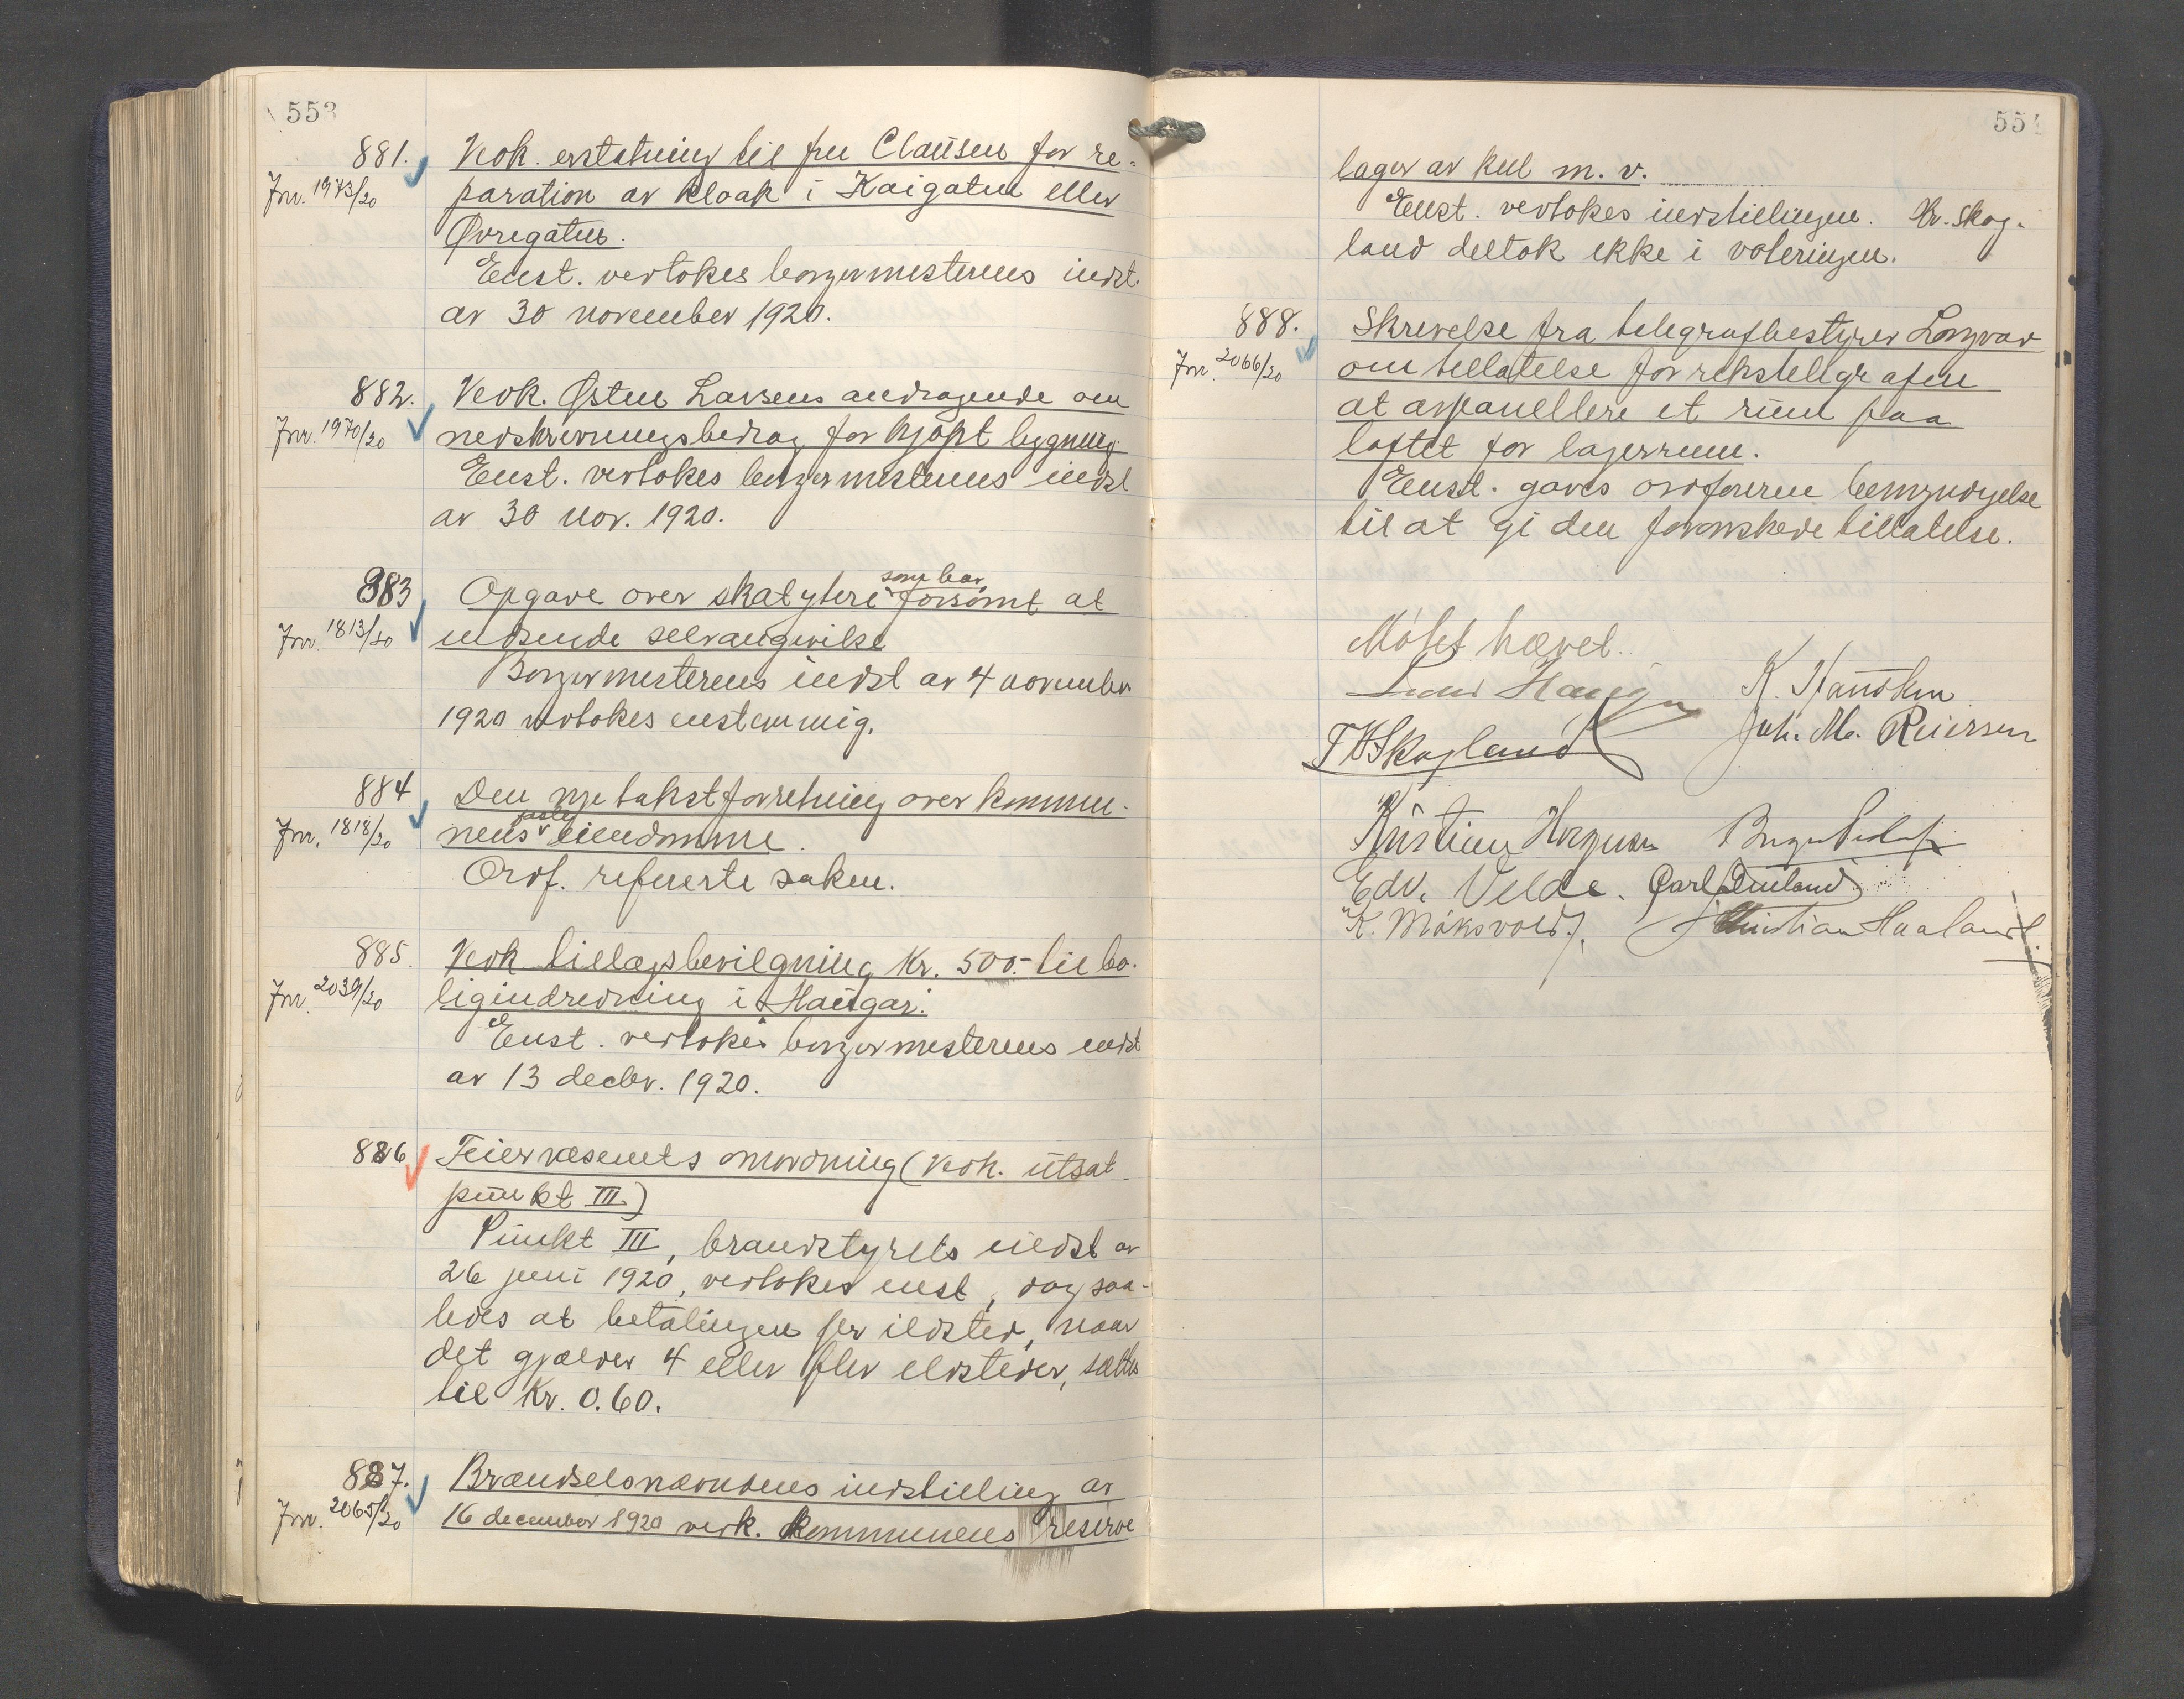 553
881. Vedk. erstatning til fru Claüsen for re-
Jnr. 1973/20 paration av kloak i Kaigaten eller
Øvregaten.
Enst. vedtokes borgermesterens indst.
av 30 november 1920.
882. Vedk. Østen Larsens andragende om
Jnr. 1970/20 nedskrivningsbedrag for kjøpt bygning
Enst. vedtokes borgermesterens indst
av 30 nov. 1920.
883 Opgave over skatytere som har forsømt at
Jnr. 1813/20 indsende selvangivelse
Borgermesterens indst av 4 november
1920 vedtokes enstemmig.
884 Den nye takstforretning over kommu-
Jnr. 1818/20 nens faste eiendomme.
Ordf. refererte saken.
885. Vedk tillægsbevilgning Kr. 500.- til bo-
Jnr. 2039/20 ligindredning i Haügar.
Enst. vedtokes borgermesterens indst
av 13 decbr. 1920.
886 Feiervæsenets omordning (Vedk. ütsat
pünkt III)
Pünkt III, brandstyrets indst av
26 juni 1920, vedtokes enst, dog saa-
ledes at betalingen per ildsted, naar
det gjælder 4 eller fler ildsteder, sættes
til Kr. 0.60.
887. Brændselsnævndens indstilling av
Jnr. 2065/20 16 december 1920 vedk. kommunens reserve
551
lager av kul m. v.
Enst. vedtokes indstillingen. Hr. Skog-
land deltok ikke i voteringen.
888. Skrivelse fra telegrafbestyrer Longvar
Jnr. 2066/20 om tillatelse for rikstelegrafen
at avpanellere et rüm paa
loftet for lagerrum.
Enst. gaves ordføreren bemyndigelse
til at gi den forønskede tillatelse.
Møtet hævet.
K.
T H Skogland Joh. M. Reiersen
Kristian
Edv. Velde. Carl
K. Maksvold. Christian Haaland